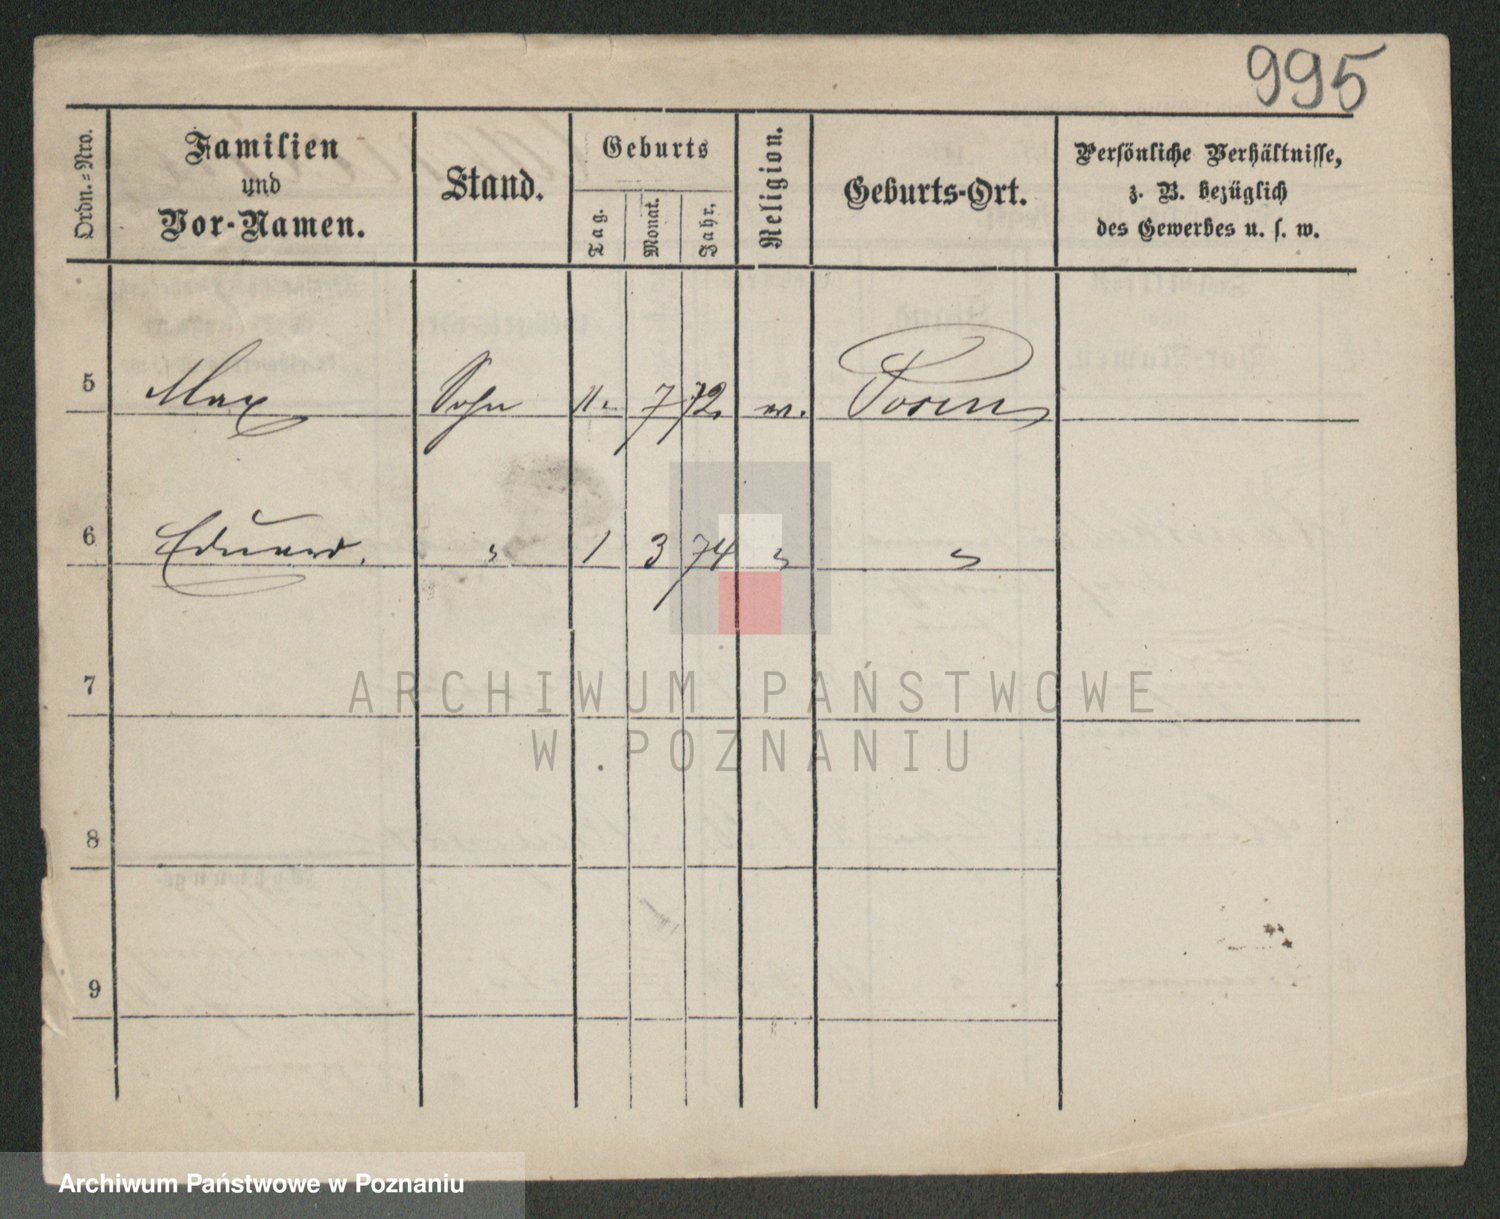 995
Ordn.=Nro.
Familien
und
Vor-Namen.
Stand.
Geburts
Tag.
Monat.
Jahr.
Religion.
Geburts-Ort.
Persönliche Verhältnisse,
z. B. bezüglich
des Gewerbes u. s. w.
5 Max Sohn 11. 7 72. m. Posen
6 Eduard. " 1 3 74 " "
7
8
9
ARCHIWUM PAŃSTWOWE
W POZNANIU
Archiwum Państwowe w Poznaniu